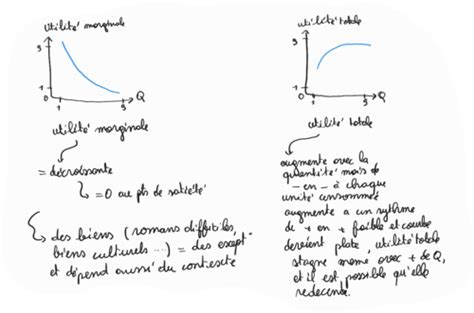 utilité marginale
5
1
0
1
5
Q
utilité marginale
= décroissante
= 0 au pts de satiété
des biens (romans difficiles,
biens culturels ...) = des except°
et dépend aussi du contexte
utilité totale
5
1
0
1
5
Q
utilité totale
augmente avec la
quantité mais de
- en - à chaque
unité consommée
augmente a un rythme
de + en + faible et courbe
devient plate, utilité totale
stagne même avec + de Q,
et il est possible qu'elle
redescende.